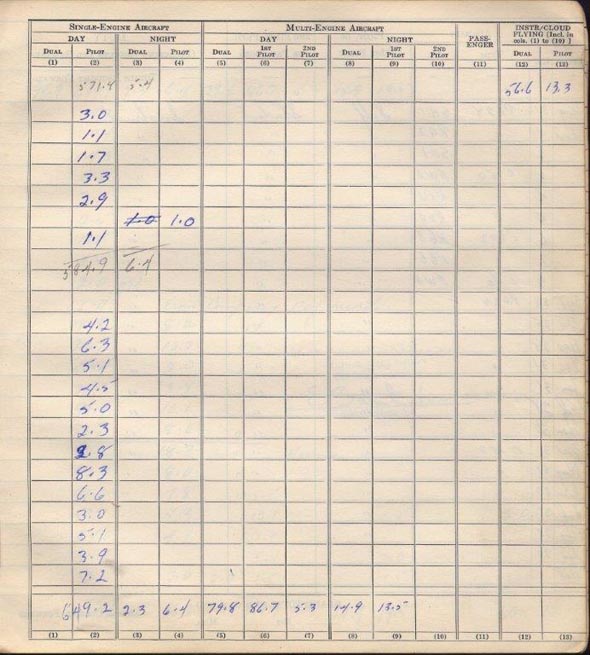 SINGLE-ENGINE AIRCRAFT MULTI-ENGINE AIRCRAFT INSTR/CLOUD FLYING [Incl. in cols. (1) to (10) ]
DAY NIGHT DAY NIGHT PASS-ENGER
DUAL PILOT DUAL PILOT DUAL 1ST PILOT 2ND PILOT DUAL 1ST PILOT 2ND PILOT DUAL PILOT
(1) (2) (3) (4) (5) (6) (7) (8) (9) (10) (11) (12) (13)
571.4 5.4 56.6 13.3
3.0
1.1
1.7
3.3
2.9
1.0 1.0
1.1
584.9 6.4
4.2
6.3
5.1
4.5
5.0
2.3
.8
8.3
6.6
3.0
5.1
3.9
7.2
649.2 2.3 6.4 79.8 86.7 5.3 14.9 13.5
(1) (2) (3) (4) (5) (6) (7) (8) (9) (10) (11) (12) (13)